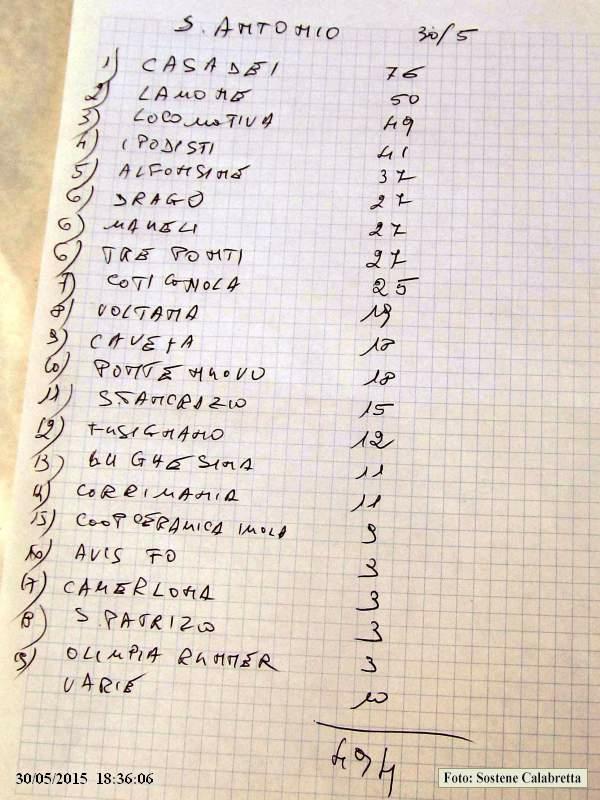 S. ANTONIO 30/5
1) CASADEI 76
2) LAMONE 50
3) LOCOMOTIVA 49
4) IPODISTI 41
5) ALFONSINE 37
6) DRAGO 27
6) MAMELI 27
6) TRE PONTI 27
7) COTIGNOLA 25
8) VOLTANA 19
9) CAVEJA 18
10) PONTE NUOVO 18
11) S. PANCRAZIO 15
12) FUSIGNANO 12
13) LUGHESINA 11
14) CORRIMANIA 11
15) COOP CERAMICA IMOLA 9
16) AVIS FO 3
17) CAMERLONA 3
18) S. PATRIZO 3
19) OLIMPIA RUNNER 3
VARIE 10
494
30/05/2015 18:36:06
Foto: Sostene Calabretta